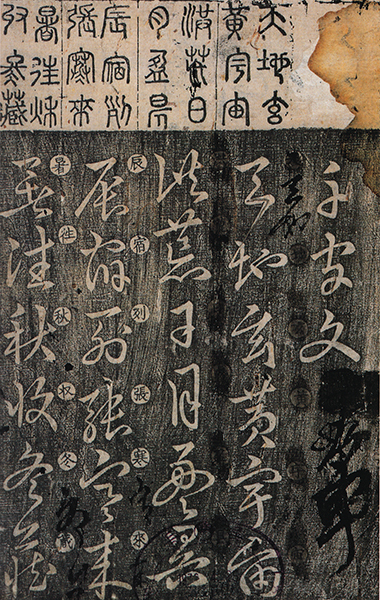 天地玄
黃宇宙
洪荒日
月盈昃
辰宿列
張寒來
暑往秋
收冬藏
千字文
天地玄黃宇宙
洪荒日月盈昃
辰宿列張寒來
辰宿列張寒來
暑往秋收冬藏
暑往秋收冬藏